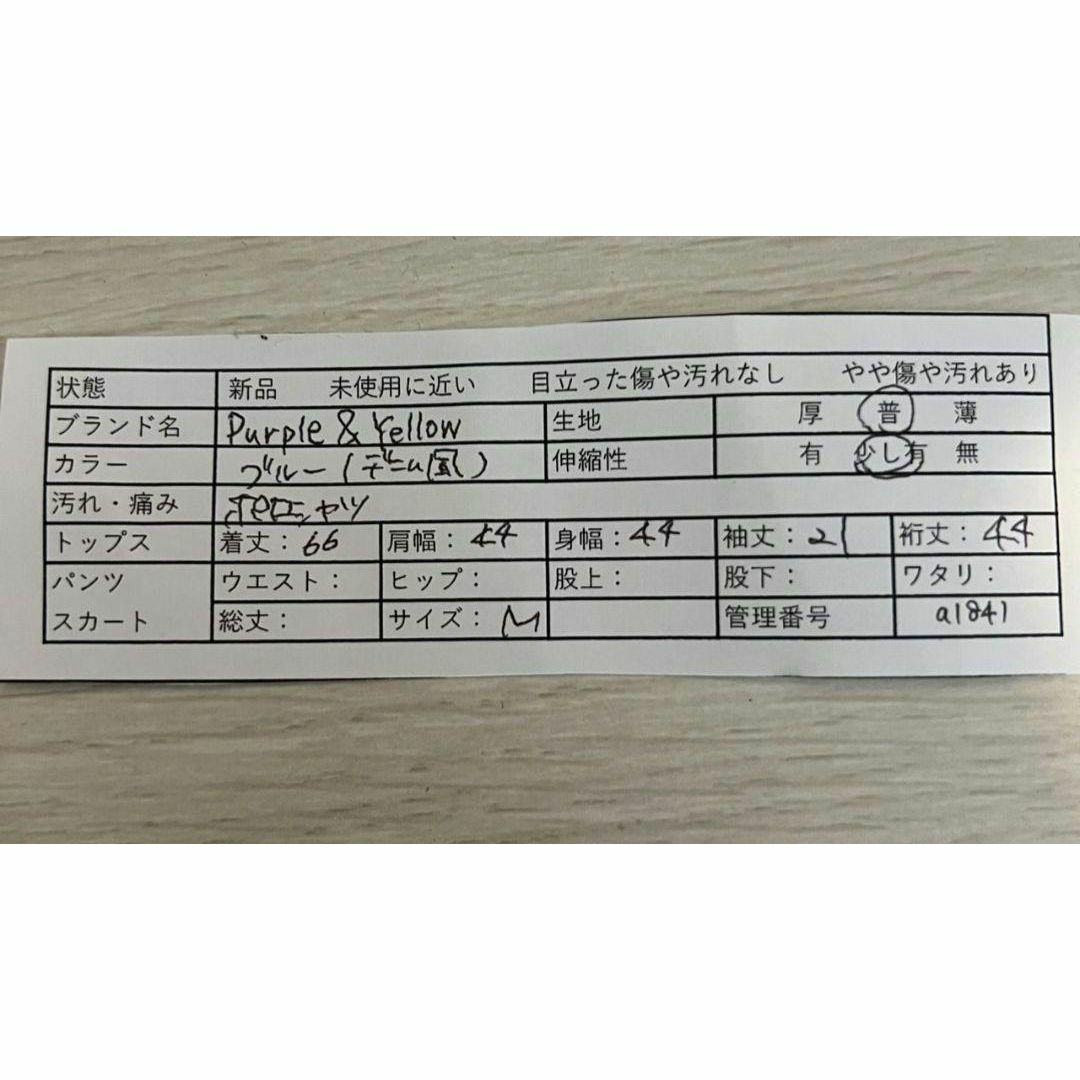 状態 新品 未使用に近い 目立った傷や汚れなし やや傷や汚れあり
ブランド名 Purple & Yellow 生地 厚 普 薄
カラー ブルー(デニム風) 伸縮性 有 少し有 無
汚れ・痛み ポロシャツ
トップス 着丈:66 肩幅:44 身幅:44 袖丈:21 裄丈:44
パンツ ウエスト: ヒップ: 股上: 股下: ワタリ:
スカート 総丈: サイズ:M 管理番号 a1841